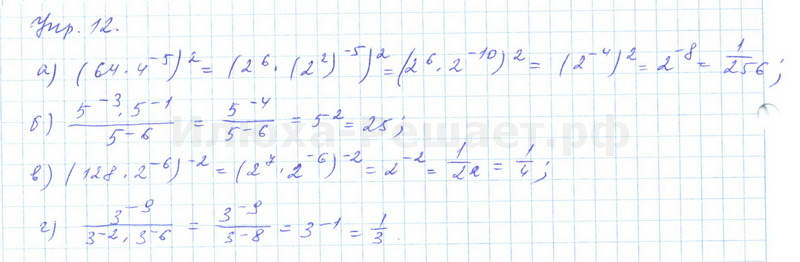 Упр. 12.
а) (64 · 4⁻⁵)² = (2⁶ · (2²)⁻⁵)² = (2⁶ · 2⁻¹⁰)² = (2⁻⁴)² = 2⁻⁸ = 1/256;
б) 5⁻³ · 5⁻¹ / 5⁻⁶ = 5⁻⁴ / 5⁻⁶ = 5² = 25;
в) (128 · 2⁻⁶)⁻² = (2⁷ · 2⁻⁶)⁻² = 2⁻² = 1/2² = 1/4;
г) 3⁻⁹ / 3⁻² · 3⁻⁶ = 3⁻⁹ / 3⁻⁸ = 3⁻¹ = 1/3.
Илюха-Решает.рф